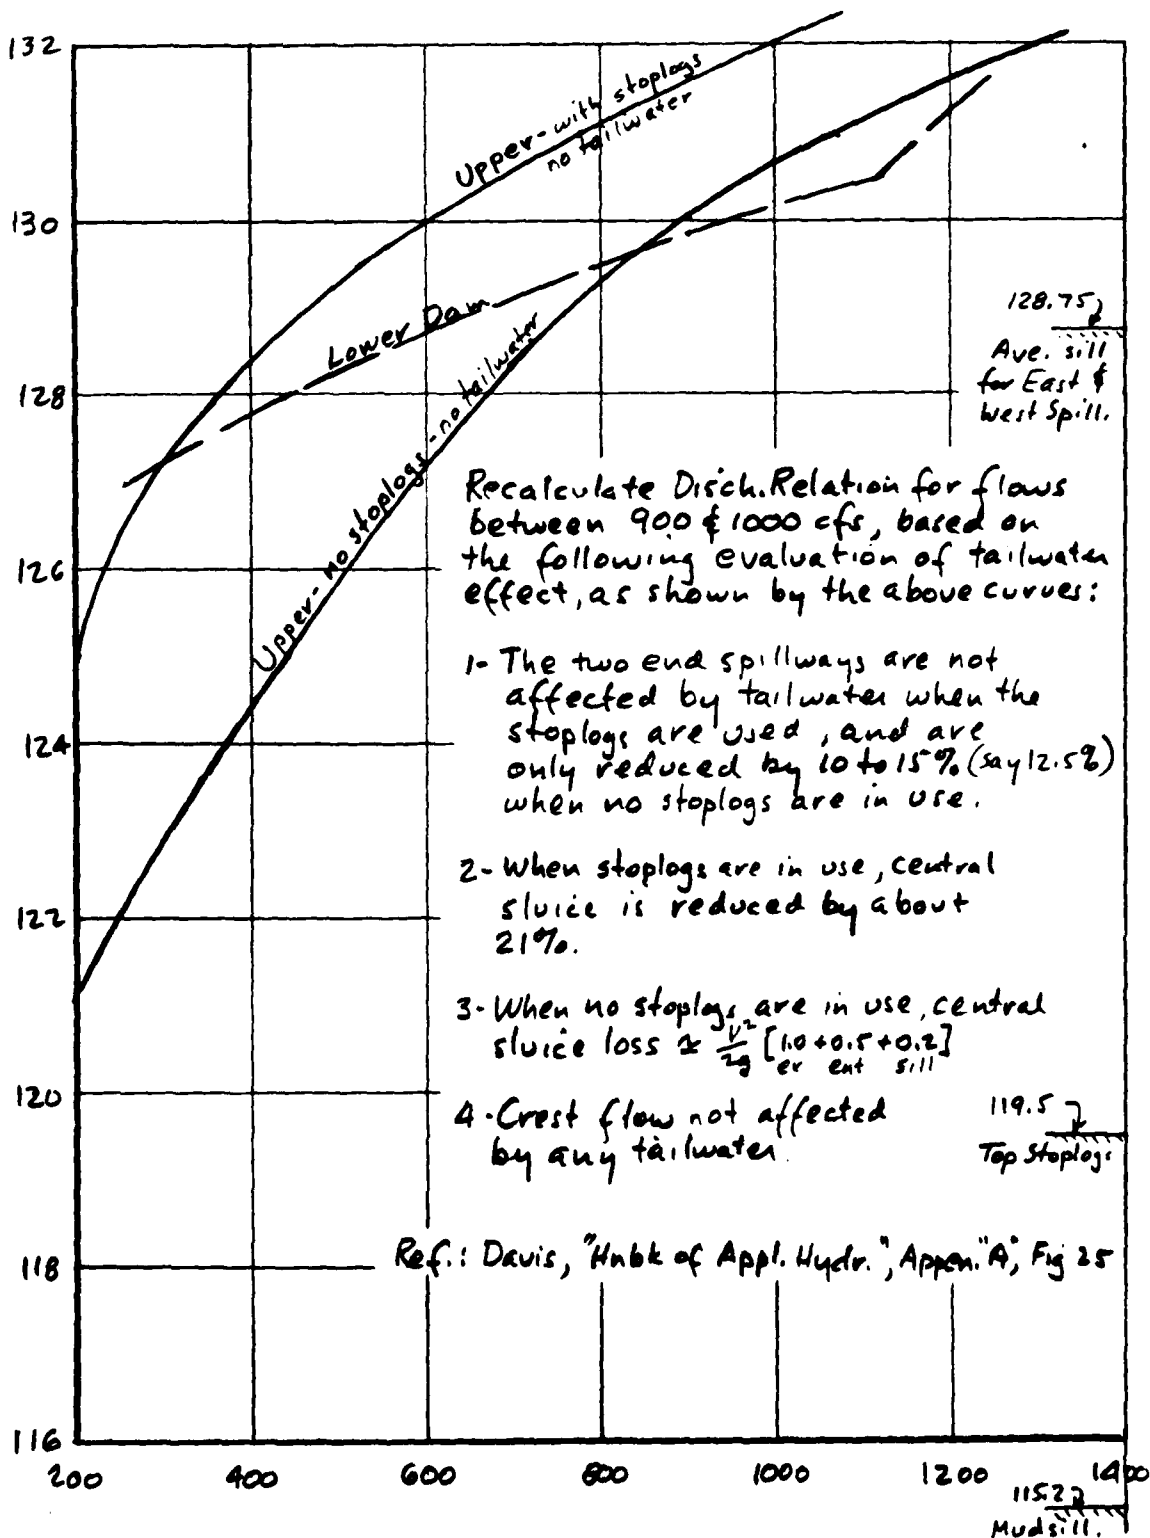 132
Upper - with stoplogs
no tailwater
130
128.75
Lower Dam
Ave. sill
for East &
West Spill.
128
Upper - no stoplogs - no tailwater
Recalculate Disch. Relation for flows
between 900 & 1000 cfs, based on
126
the following evaluation of tailwater
effect, as shown by the above curves:
1- The two end spillways are not
affected by tailwater when the
stoplogs are used, and are
124
only reduced by 10 to 15% (say 12.5%)
when no stoplogs are in use.
2- When stoplogs are in use, central
122
sluice is reduced by about
21%.
3- When no stoplogs are in use, central
sluice loss ≈ V²/2g [1.0 + 0.5 + 0.2]
ex ent sill
120
4 - Crest flow not affected
by any tailwater.
119.5
Top Stoplogs
118
Ref.: Davis, "Hnbk of Appl. Hydr.", Appen. "A", Fig 25
116
200 400 600 800 1000 1200 1400
115.2
Mudsill.